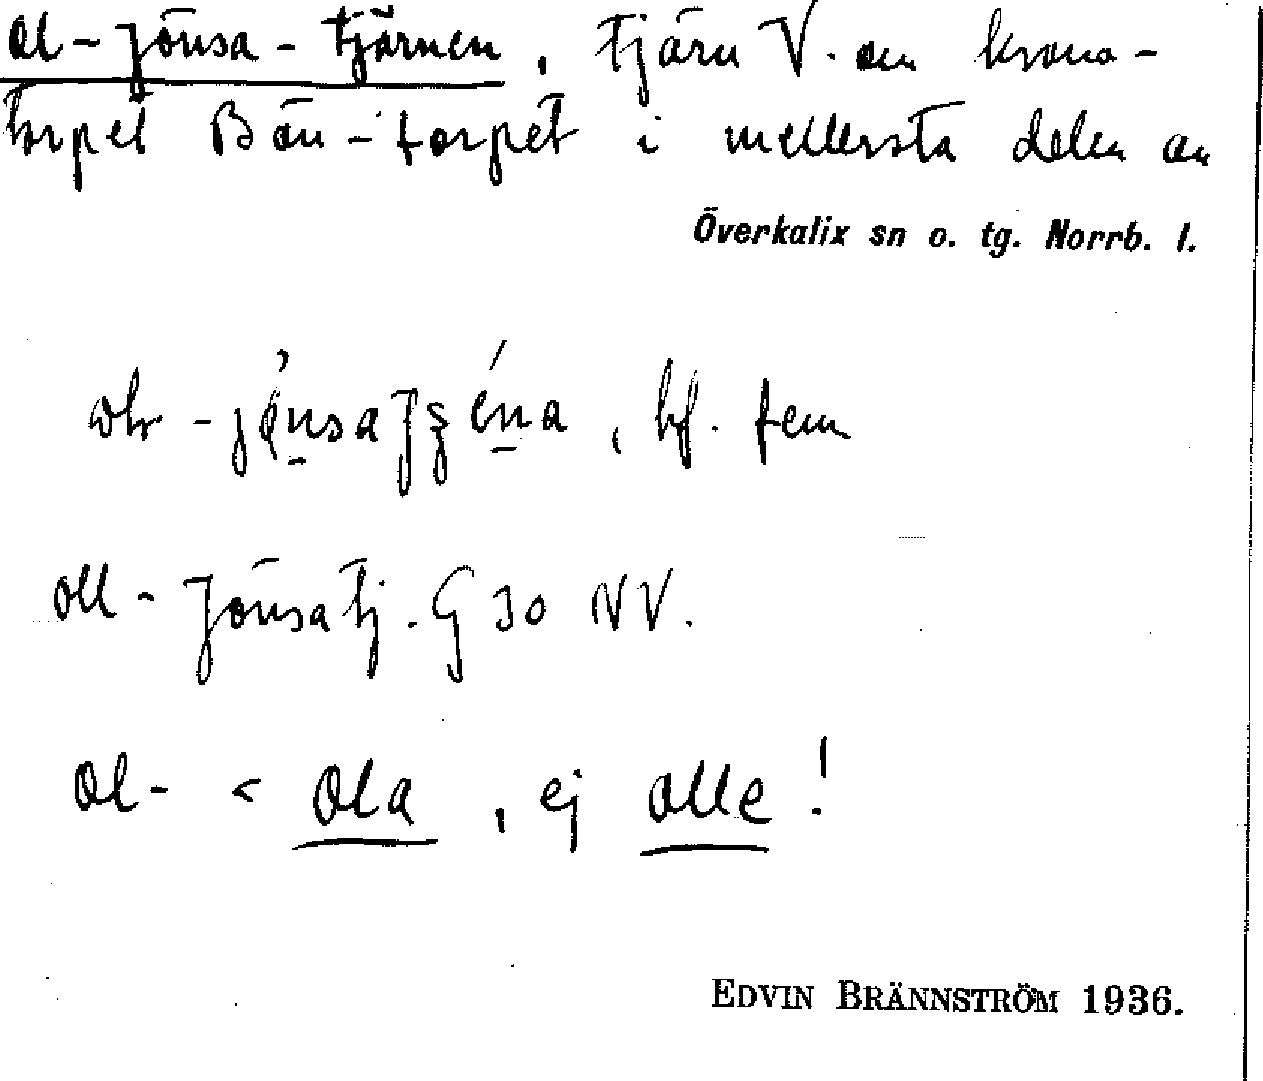 Ol-Jönsa-tjärnen, tjärn V. om krono-
torpet Bön-torpet i mellersta delen av
Överkalix sn o. tg. Norrb. l.
bf. fem
Oll-Jönsatj. G 30 NV.
Ol- < Ola, ej Olle!
EDVIN BRÄNNSTRÖM 1936.